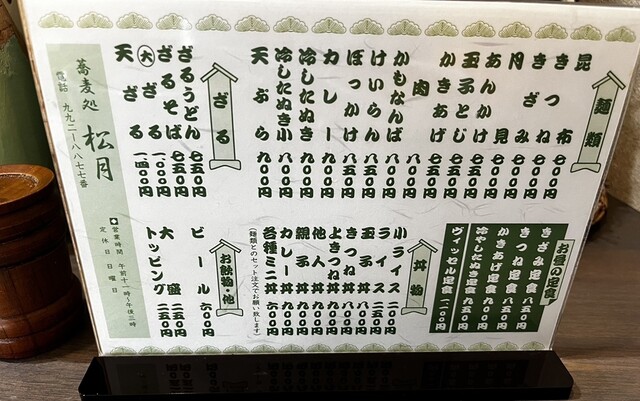 麺類
昆布 七〇〇円
きつね 七〇〇円
きざみ 七〇〇円
月見 七〇〇円
あんかけ 七五〇円
玉子とじ 七五〇円
かきあげ 七五〇円
肉 八〇〇円
かもなんば 八〇〇円
けいらん 八五〇円
ぼっかけ 八五〇円
カレー 九〇〇円
冷したぬき 九〇〇円
冷したぬき小 八〇〇円
天ぷら 九〇〇円
ざる
ざるうどん 七五〇円
ざるそば 七五〇円
大ざる 一〇〇〇円
天ざる 一四〇〇円
お昼の定食
きざみ定食 八五〇円
きつね定食 八五〇円
かきあげ定食 九五〇円
冷やしたぬき定食 九五〇円
ヴィッセル定食 一一〇〇円
丼物
小ライス 二〇〇円
ライス 二五〇円
玉子丼 八〇〇円
きつね丼 八〇〇円
よきつね丼
他人丼 九〇〇円
親子丼 九〇〇円
カレー丼 九〇〇円
各種ミニ丼 六〇〇円
(麺類とのセット注文でお願い致します)
お飲物・他
ビール 六〇〇円
大盛 二五〇円
トッピング 二五〇円
蕎麦処 松月
電話 九九二-八八七七番
営業時間 午前十一時~午後三時
定休日 日曜日